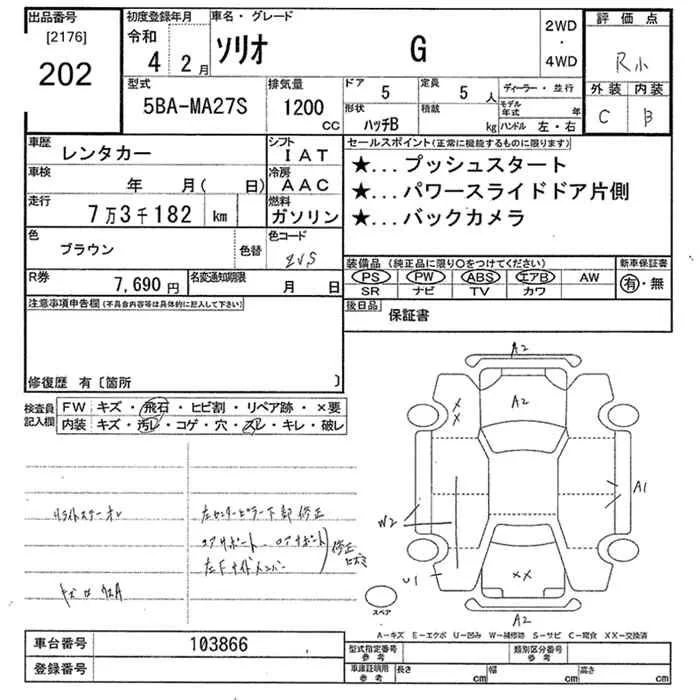 出品番号
[2176]
202
初度登録年月
令和
4 2月
車名・グレード
ソリオ G
2WD
・
4WD
評価点
R小
外装 内装
C B
型式
5BA-MA27S
排気量
1200
CC
ドア 5
定員 5人
形状
ハッチB
積載
kg
ディーラー・並行
モデル年式 年
ハンドル 左・右
車歴 レンタカー
シフト IAT
車検 年 月( 日)
冷房 AAC
走行 7万3千182 km
燃料 ガソリン
色 ブラウン
色替
色コード
ZVS
R券 7,690円
名変通知期限 月 日
セールスポイント(正常に機能するものに限ります)
★...プッシュスタート
★...パワースライドドア片側
★...バックカメラ
装備品(純正品に限り○をつけてください)
PS PW ABS エアB AW
SR ナビ TV カワ
新車保証書
有・無
後日品
保証書
注意事項申告欄(不具合内容等は具体的に記入して下さい)
修復歴 有〔箇所 〕
検査員記入欄
FW キズ・飛石・ヒビ割・リペア跡・×要
内装 キズ・汚レ・コゲ・穴・スレ・キレ・破レ
左センターピラー下部修正
A2
A2
XX
A1
W2
U1
XX
A2
スペア
A-キズ E-エクボ U-凹み W-補修跡 S-サビ C-腐食 XX-交換済
車台番号 103866
登録番号
型式指定番号 参考
類別区分番号 参考
車庫証明用 参考
長さ cm
幅 cm
高さ cm